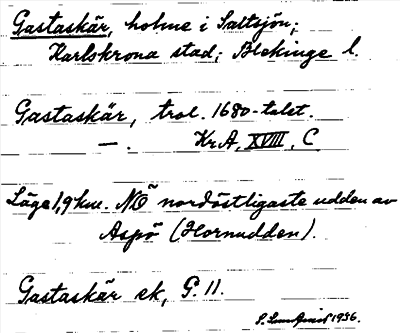 Gastaskär, holme i Saltsjön;
Karlskrona stad; Blekinge l.
Gastaskär, trol. 1680-talet.
—. Kr.A, XVIII, C
Läge 1,9 km. NÖ nordöstligaste udden av
Aspö (Hornudden).
Gastaskär ek, G. 11.
1936.